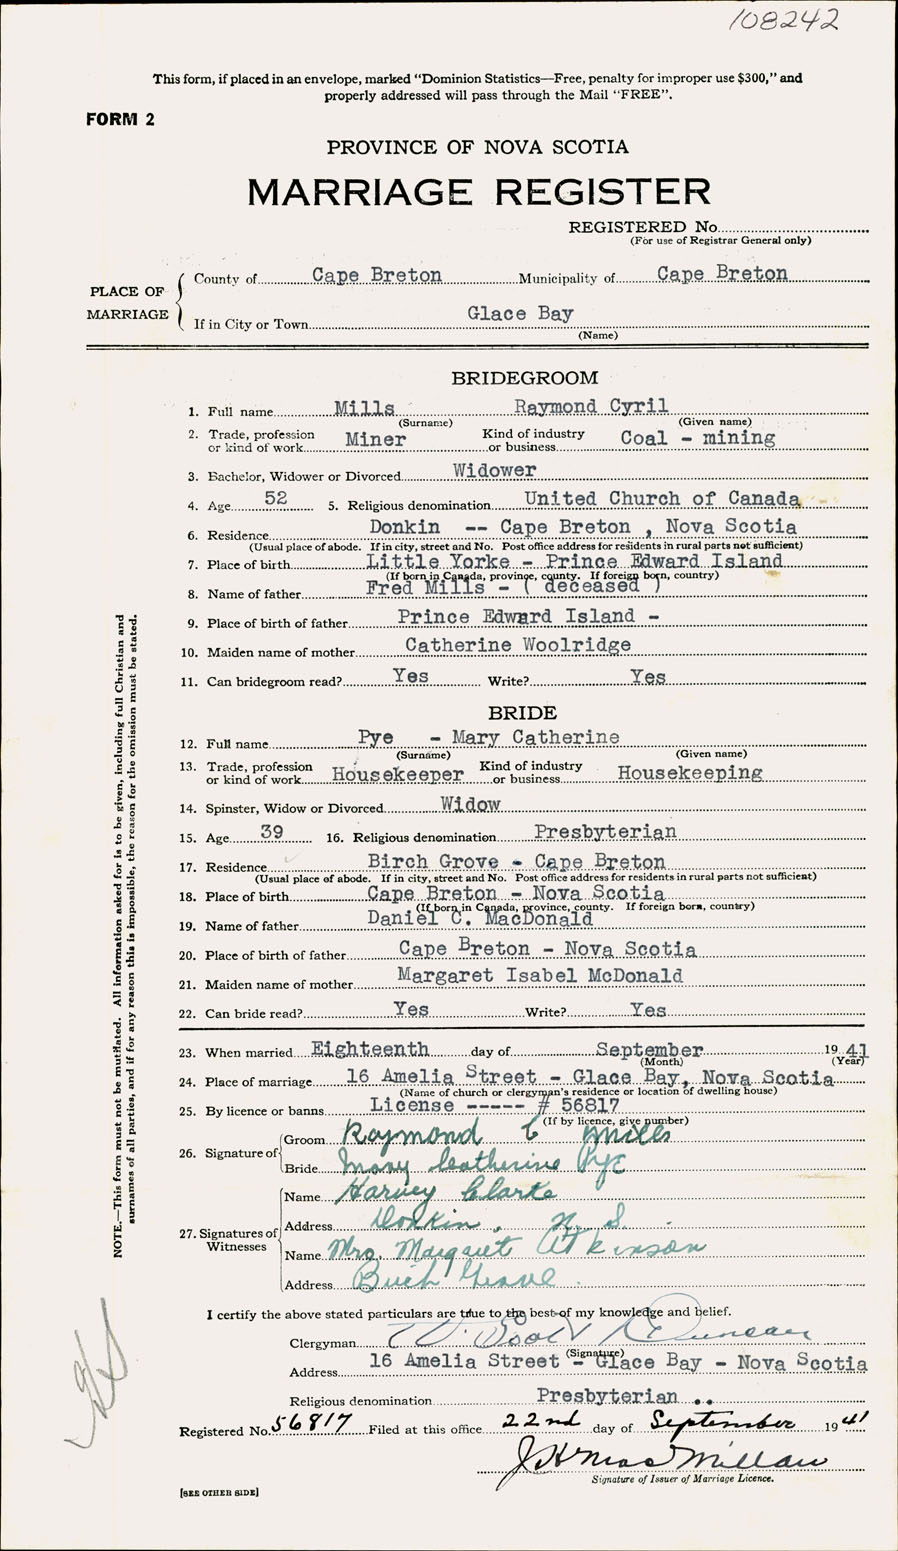 108242
This form, if placed in an envelope, marked "Dominion Statistics—Free, penalty for improper use $300," and
properly addressed will pass through the Mail "FREE".
FORM 2
PROVINCE OF NOVA SCOTIA
MARRIAGE REGISTER
REGISTERED No.
(For use of Registrar General only)
PLACE OF MARRIAGE
County of Cape Breton Municipality of Cape Breton
If in City or Town Glace Bay
(Name)
BRIDEGROOM
1. Full name Mills Raymond Cyril
(Surname) (Given name)
2. Trade, profession or kind of work Miner Kind of industry or business Coal - mining
3. Bachelor, Widower or Divorced Widower
4. Age 52 5. Religious denomination United Church of Canada
6. Residence Donkin -- Cape Breton , Nova Scotia
(Usual place of abode. If in city, street and No. Post office address for residents in rural parts not sufficient)
7. Place of birth Little Yorke - Prince Edward Island
(If born in Canada, province, county. If foreign born, country)
8. Name of father Fred Mills - ( deceased )
9. Place of birth of father Prince Edward Island -
10. Maiden name of mother Catherine Woolridge
11. Can bridegroom read? Yes Write? Yes
BRIDE
12. Full name Pye - Mary Catherine
(Surname) (Given name)
13. Trade, profession or kind of work Housekeeper Kind of industry or business Housekeeping
14. Spinster, Widow or Divorced Widow
15. Age 39 16. Religious denomination Presbyterian
17. Residence Birch Grove - Cape Breton
(Usual place of abode. If in city, street and No. Post office address for residents in rural parts not sufficient)
18. Place of birth Cape Breton - Nova Scotia
(If born in Canada, province, county. If foreign born, country)
19. Name of father Daniel C. MacDonald
20. Place of birth of father Cape Breton - Nova Scotia
21. Maiden name of mother Margaret Isabel McDonald
22. Can bride read? Yes Write? Yes
23. When married Eighteenth day of September 1941
(Month) (Year)
24. Place of marriage 16 Amelia Street - Glace Bay, Nova Scotia
(Name of church or clergyman's residence or location of dwelling house)
25. By licence or banns License ----- # 56817
(If by licence, give number)
26. Signature of Groom Raymond C Mills
Bride Mary Catherine Pye
27. Signatures of Witnesses
Name Harvey Clarke
Address Donkin, N. S.
Name Mrs. Margaret Atkinson
Address Birch Grove.
I certify the above stated particulars are true to the best of my knowledge and belief.
Clergyman Scott Duncan
(Signature)
Address 16 Amelia Street - Glace Bay - Nova Scotia
Religious denomination Presbyterian ..
Registered No. 56817 Filed at this office 22nd day of September 1941
J H MacMillan
Signature of Issuer of Marriage Licence.
[SEE OTHER SIDE]
NOTE.—This form must not be mutilated. All information asked for is to be given, including full Christian and
surnames of all parties, and if for any reason this is impossible, the reason for the omission must be stated.